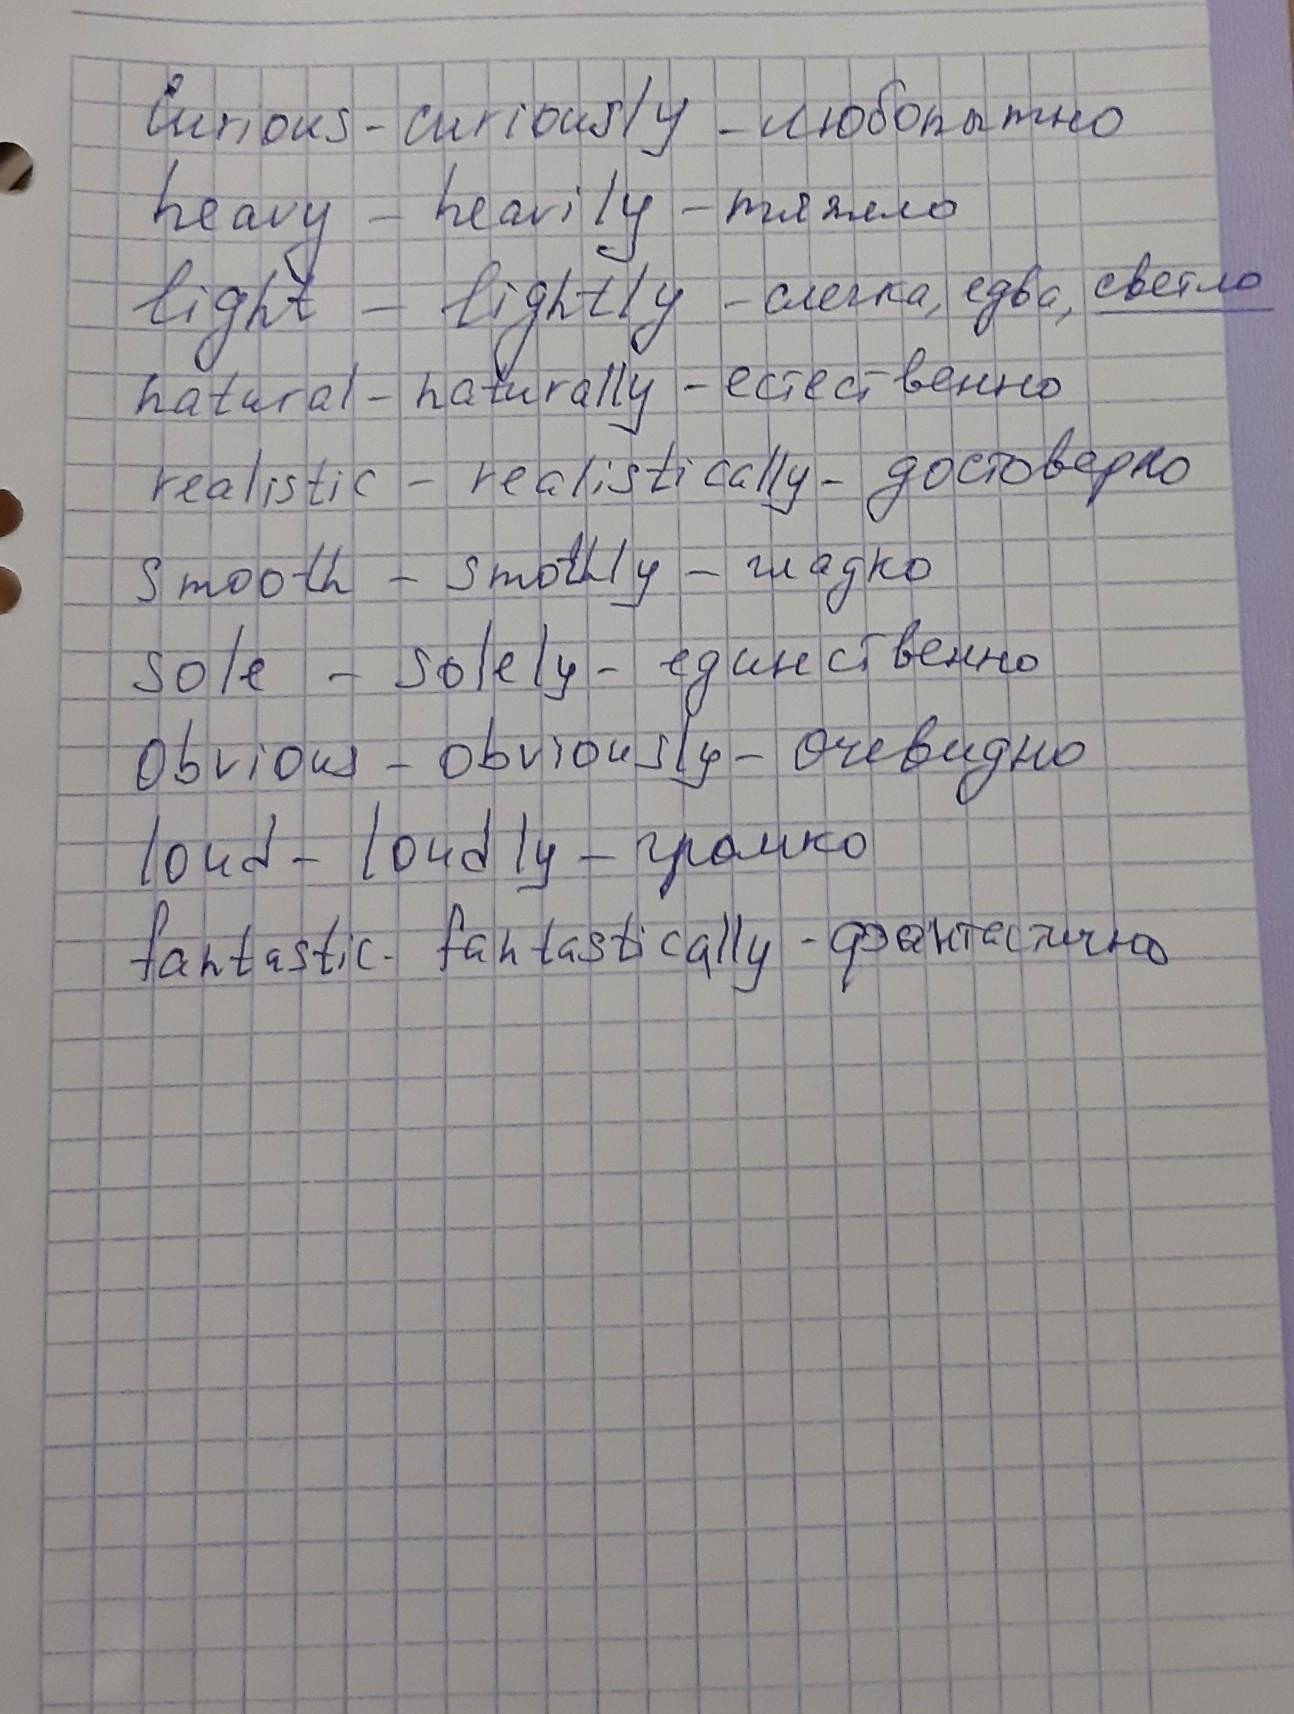 Curious - curiously - любопытно
heavy - heavily - тяжело
light - lightly - слегка, едва, светло
natural - naturally - естественно
realistic - realistically - достоверно
smooth - smothly - гладко
sole - solely - единственно
Obvious - obviously - очевидно
loud - loudly - громко
fantastic - fantastically - фантастично